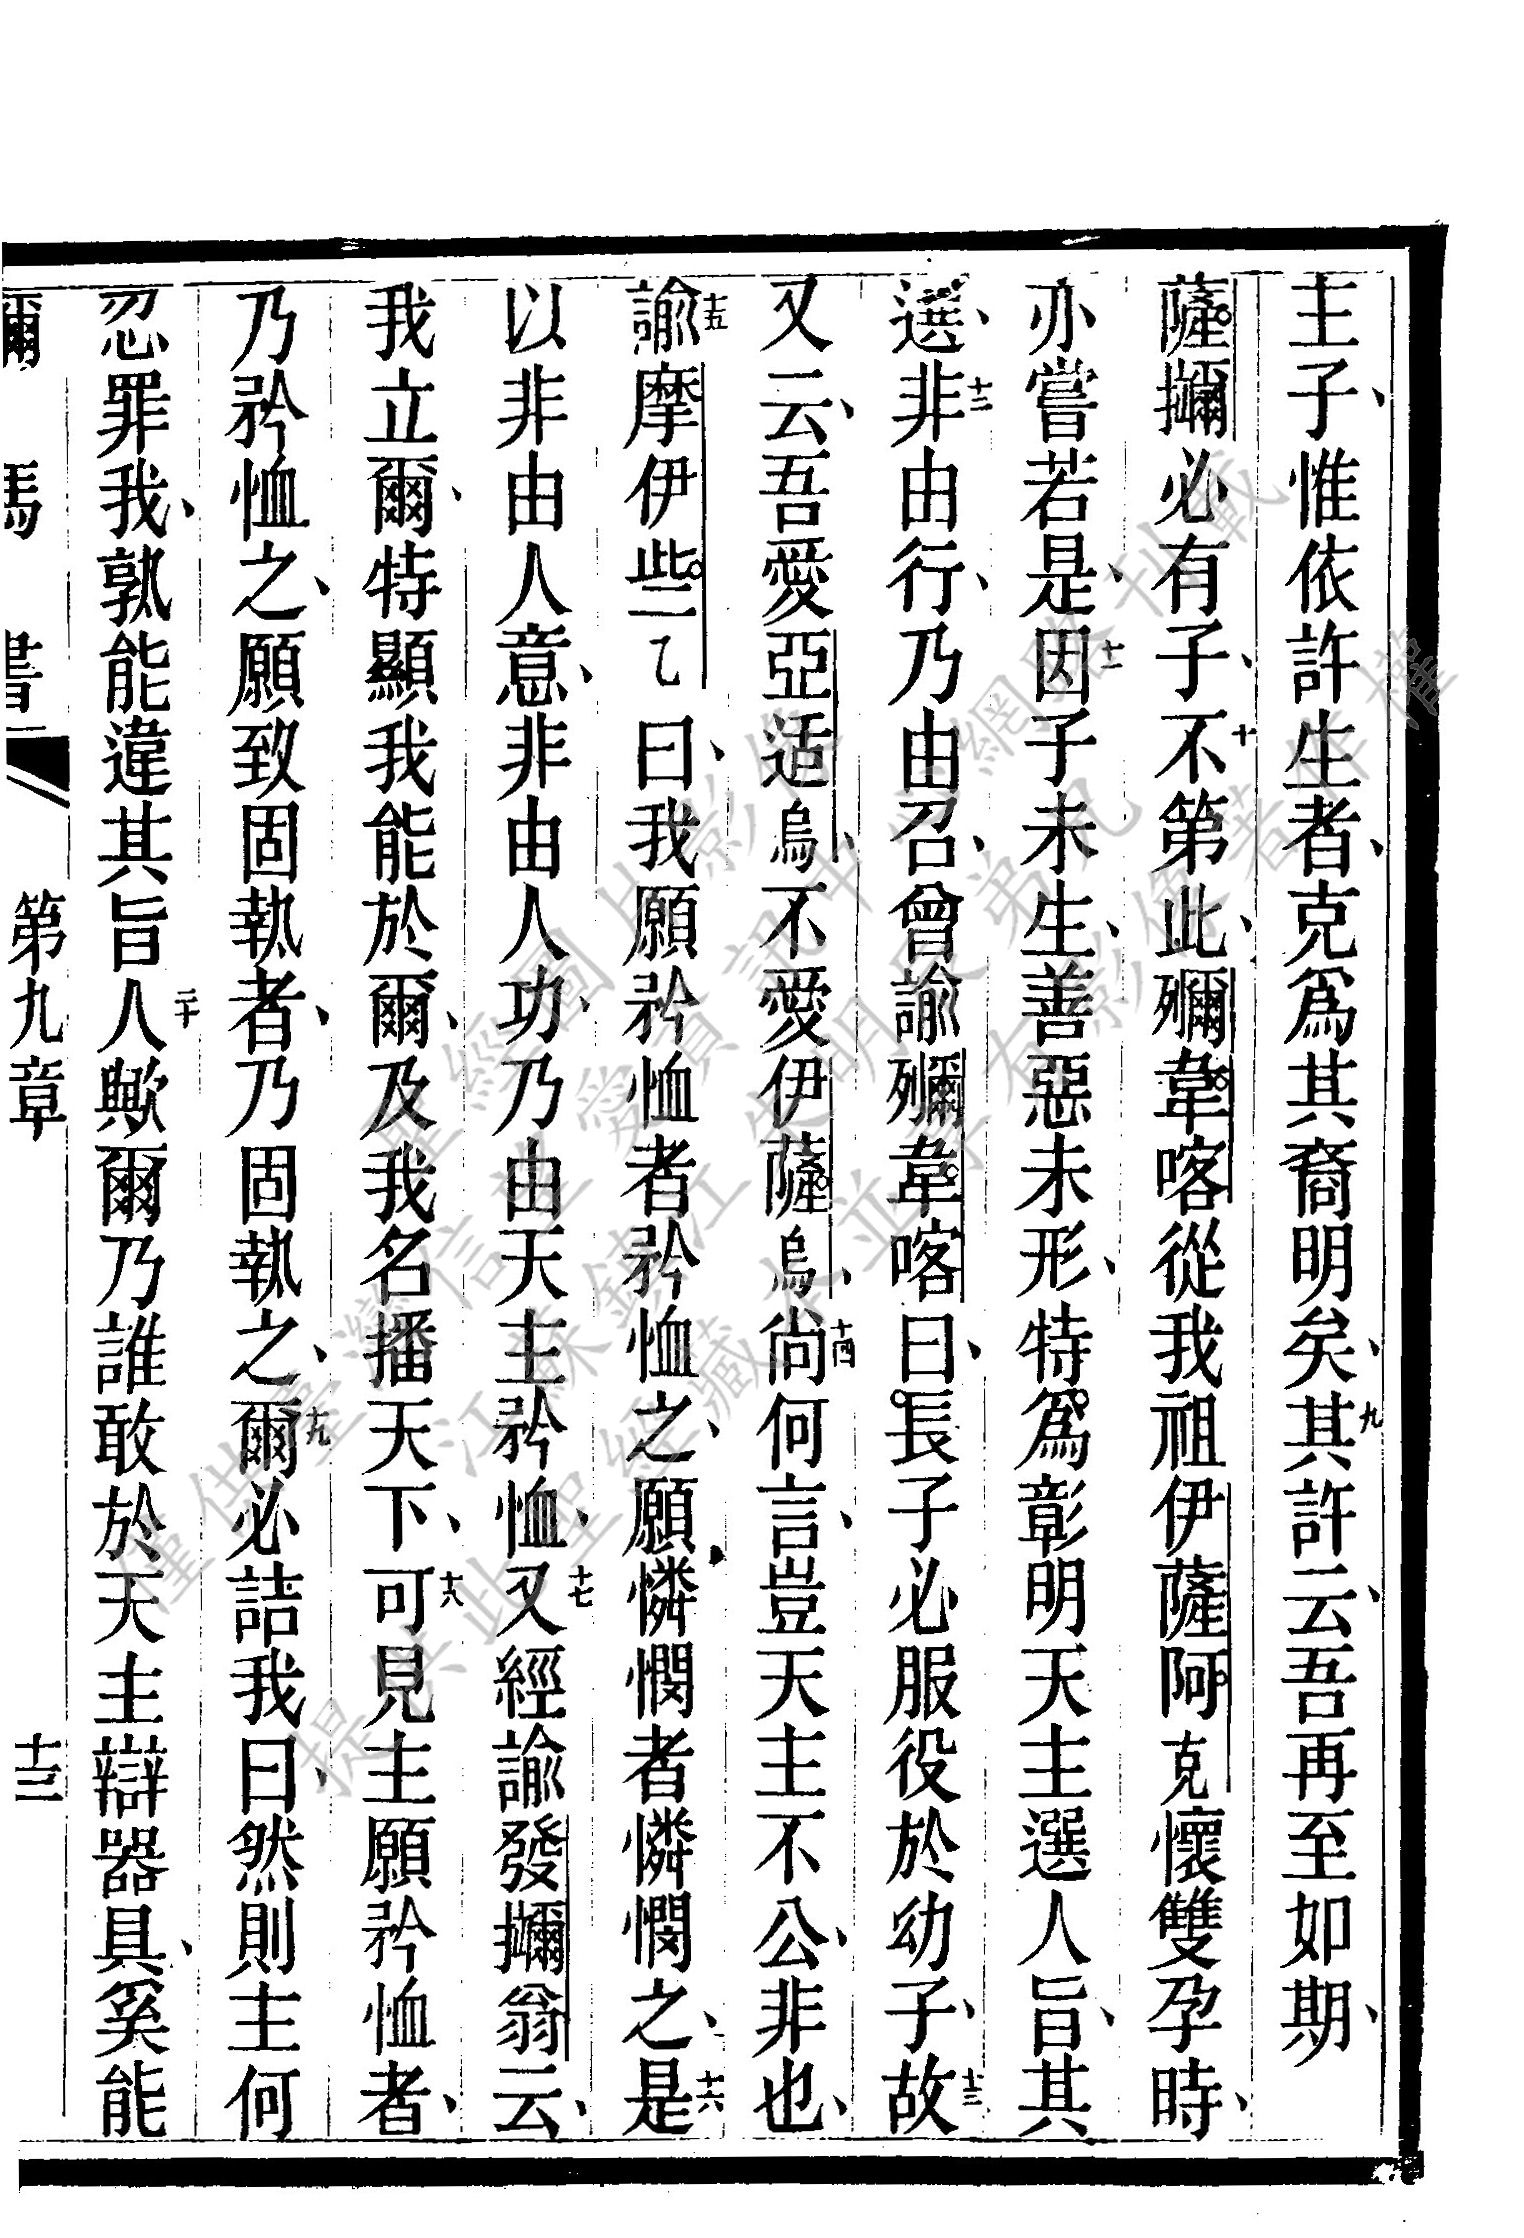 主子、惟依許生者、克爲其裔明矣、九其許云、吾再至如期、
薩攡必有子、十不第此、殢韋喀從我祖伊薩阿克懷雙孕時、
亦嘗若是、十一因子未生、善惡未形、特爲彰明天主選人旨、其
選、十二非由行、乃由召、曾諭殢韋喀曰、長子必服役於幼子、十三故
又云、吾愛亞适烏、不愛伊薩烏、十四尚何言、豈天主不公、非也、
十五諭摩伊些乙曰、我願矜恤者矜恤之、願憐憫者憐憫之、十六是
以非由人意、非由人功、乃由天主矜恤、十七又經諭發攡翁云、
我立爾、特顯我能於爾、及我名播天下、十八可見主願矜恤者、
乃矜恤之、願致固執者、乃固執之、十九爾必詰我曰、然則主何
忍罪我、孰能違其旨、二十人歟、爾乃誰敢於天主辯、器具、奚能
爾馬書 第九章 十三